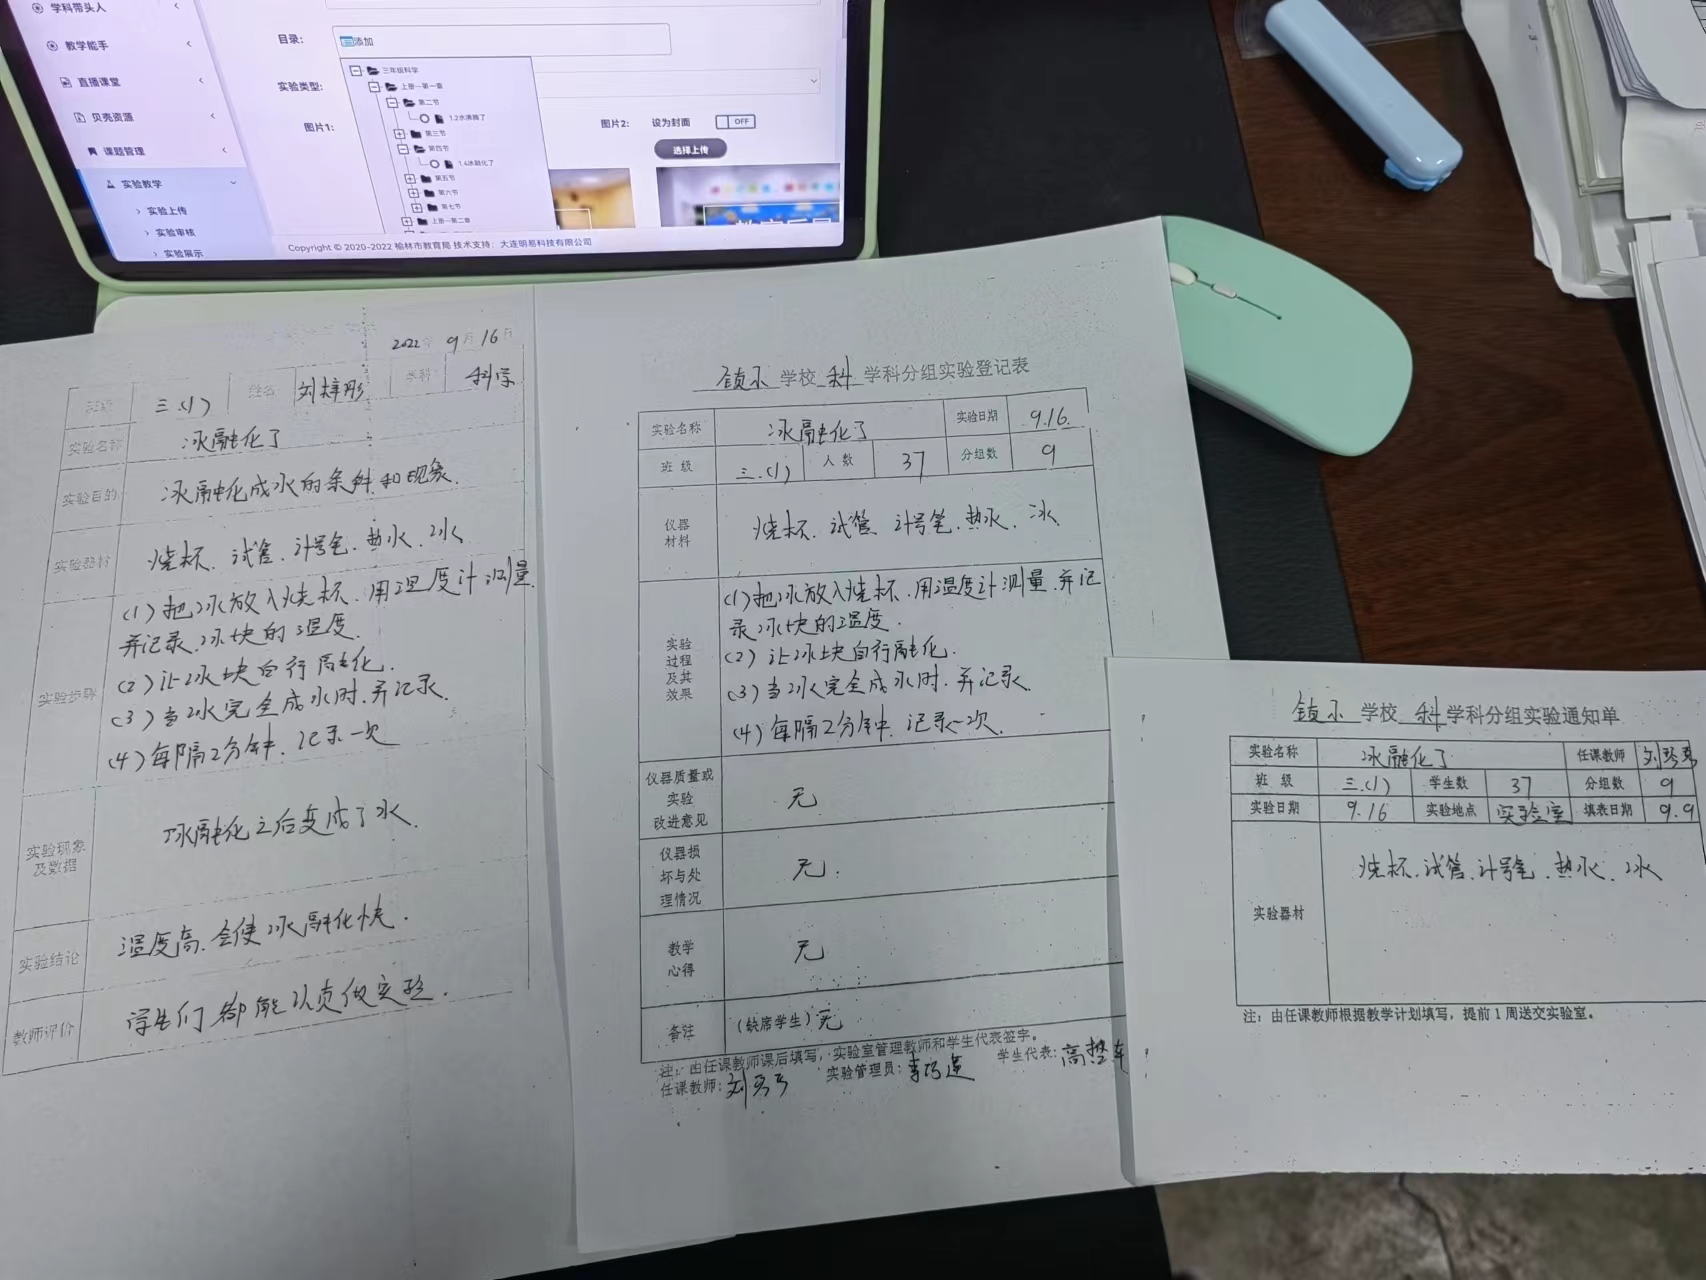 学科带头人
教学能手
直播课堂
贝壳资源
课题管理
实验教学
实验上传
实验审核
实验展示
目录:
添加
实验类型:
图片1:
三年级科学
上册--第一章
第二节
1.2水沸腾了
第三节
第四节
1.4冰融化了
第五节
第六节
第七节
上册--第二章
图片2: 设为封面 OFF
选择上传
Copyright © 2020-2022 榆林市教育局 技术支持: 大连明易科技有限公司
2022年 9月16日
班级 三.(1) 姓名 刘梓彤 学科 科学
实验名称 冰融化了
实验目的 冰融化成水的条件和现象.
实验器材 烧杯、试管、计号笔、热水、冰
实验步骤
(1)把冰放入烧杯、用温度计测量
并记录冰块的温度.
(2)让冰块自行融化.
(3)当冰完全成水时.并记录.
(4)每隔2分钟、记录一次
实验现象及数据 冰融化之后变成了水.
实验结论 温度高、会使冰融化快.
教师评价 学生们都能认真做实验.
镇小 学校 科 学科分组实验登记表
实验名称 冰融化了 实验日期 9.16.
班 级 三.(1) 人 数 37 分组数 9
仪器材料 烧杯、试管、计号笔、热水、冰
实验过程及其效果
(1)把冰放入烧杯、用温度计测量.并记
录冰块的温度.
(2)让冰块自行融化.
(3)当冰完全成水时.并记录.
(4)每隔2分钟、记录一次.
仪器质量或实验改进意见 无
仪器损坏与处理情况 无.
教学心得 无
备注 (缺席学生)无
注: 由任课教师课后填写, 实验室管理教师和学生代表签字。
任课教师: 实验管理员: 学生代表:
镇小 学校 科 学科分组实验通知单
实验名称 冰融化了 任课教师
班 级 三.(1) 学生数 37 分组数 9
实验日期 9.16 实验地点 实验室 填表日期 9.9
实验器材 烧杯、试管、计号笔、热水、冰
注: 由任课教师根据教学计划填写, 提前 1 周送交实验室。